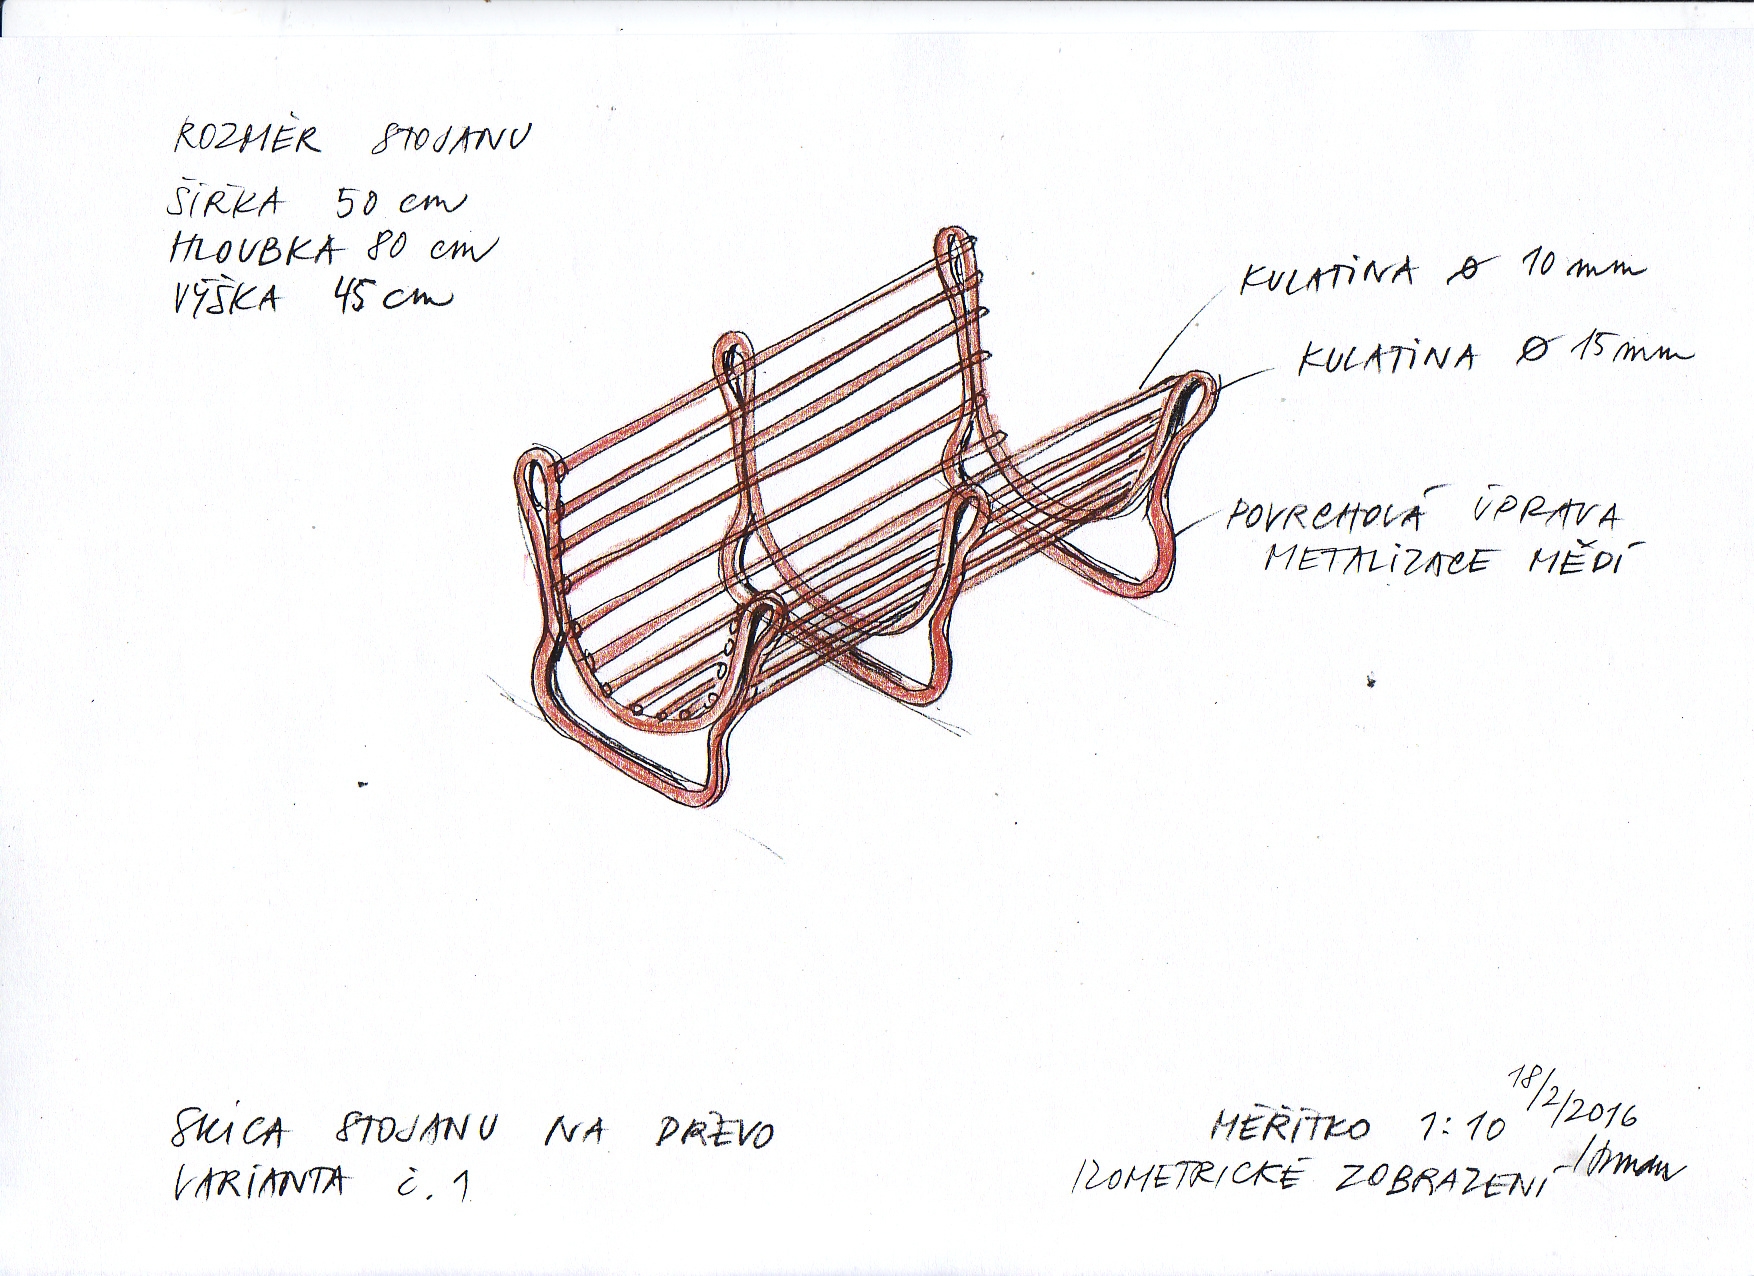 ROZMĚR STOJANU
ŠÍŘKA 50 cm
HLOUBKA 80 cm
VÝŠKA 45 cm
KULATINA ⌀ 10 mm
KULATINA ⌀ 15 mm
POVRCHOVÁ ÚPRAVA
METALIZACE MĚDÍ
SKICA STOJANU NA DŘEVO
VARIANTA č. 1
18/2/2016
MĚŘÍTKO 1:10
IZOMETRICKÉ ZOBRAZENÍ